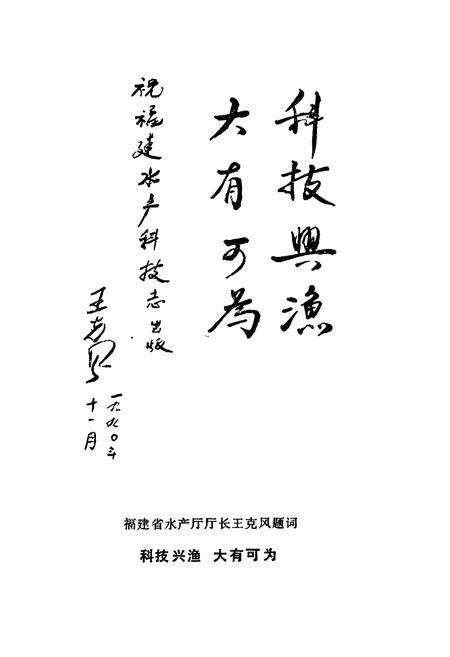 科技興渔
大有可为
祝福建水产科技志出版
王克风
一九九〇年
十一月
福建省水产厅厅长王克风题词
科技兴渔 大有可为